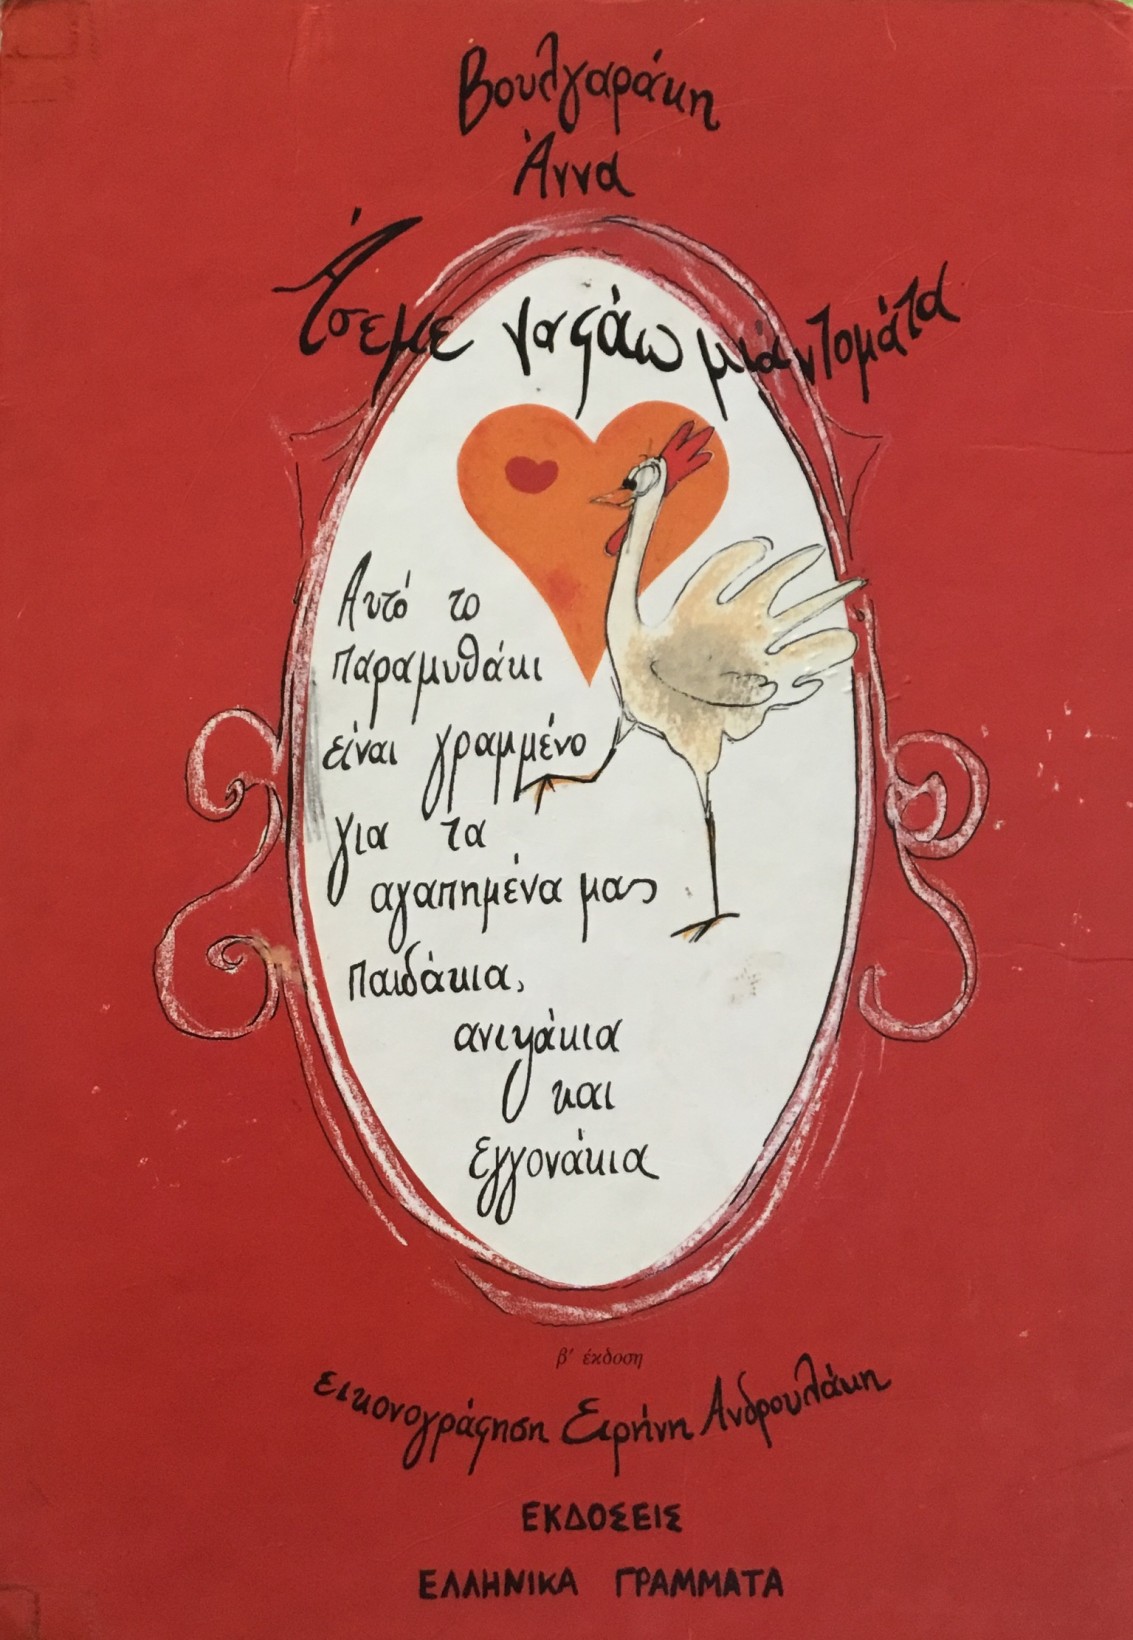 Βουλγαράκη
Άννα
Άσεμε να φάω μιά ντομάτα
Αυτό το
παραμυθάκι
είναι γραμμένο
για τα
αγαπημένα μας
παιδάκια,
ανιψάκια
και
εγγονάκια
β' έκδοση
εικονογράφηση Ειρήνη Ανδρουλάκη
ΕΚΔΟΣΕΙΣ
ΕΛΛΗΝΙΚΑ ΓΡΑΜΜΑΤΑ